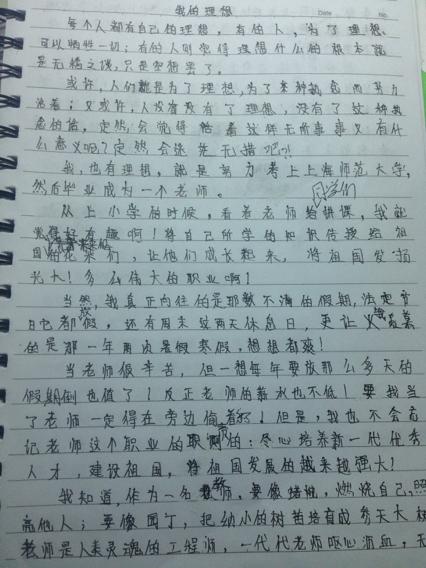 我的理想
Date
No.
每个人都有自己的理想，有的人，为了理想，
可以牺牲一切；有的人则觉得理想什么的根本就
是无稽之谈，只是空想罢了。
或许，人们就是为了理想，为了某种执念而努力
活着；又或许，人没有了理想，没有了这种执
念的话，定然会觉得活着这件无所事事又有什
么意义呢？定然会迷失无措吧？！
我，也有理想，就是努力考上上海师范大学，
然后毕业成为一个老师。
同学们
从上小学的时候，看着老师给讲课，我就
觉得好有趣啊！将自己所学的知识传授给祖
国的花朵们，让他们成长起来，将祖国发扬
光大！多么伟大的职业啊！
当然，我真正向往的是那数不清的假期，法定节
日它都放假，还有周末这两天休息日，更让人羡慕
的是那一年两次暑假寒假，想想都爽！
当老师很辛苦，但一想每年要放那么多天的
假期倒也值了！反正老师的薪水也不低！要我当
了老师一定得在旁边偷着乐！但是，我也不会忘
记老师这个职业的职责的：尽心培养新一代优秀
人才，建设祖国，将祖国发展的越来越强大！
我知道，作为一名教师，要像蜡烛，燃烧自己，照
亮他人；要像园丁，把幼小的树苗培育成参天大树
老师是人类灵魂的工程师，一代代老师呕心沥血，无